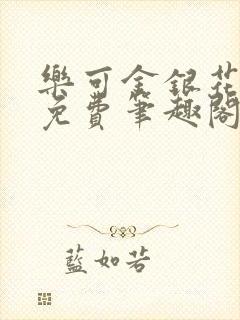 樂可金銀花
免費筆趣閣
藍如若